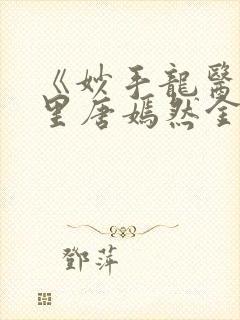 《妙手龍醫
里唐嫣然全
鄧萍